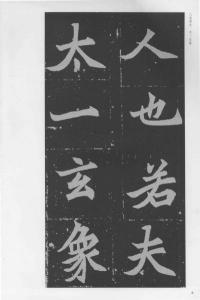 人也若夫
太一玄象